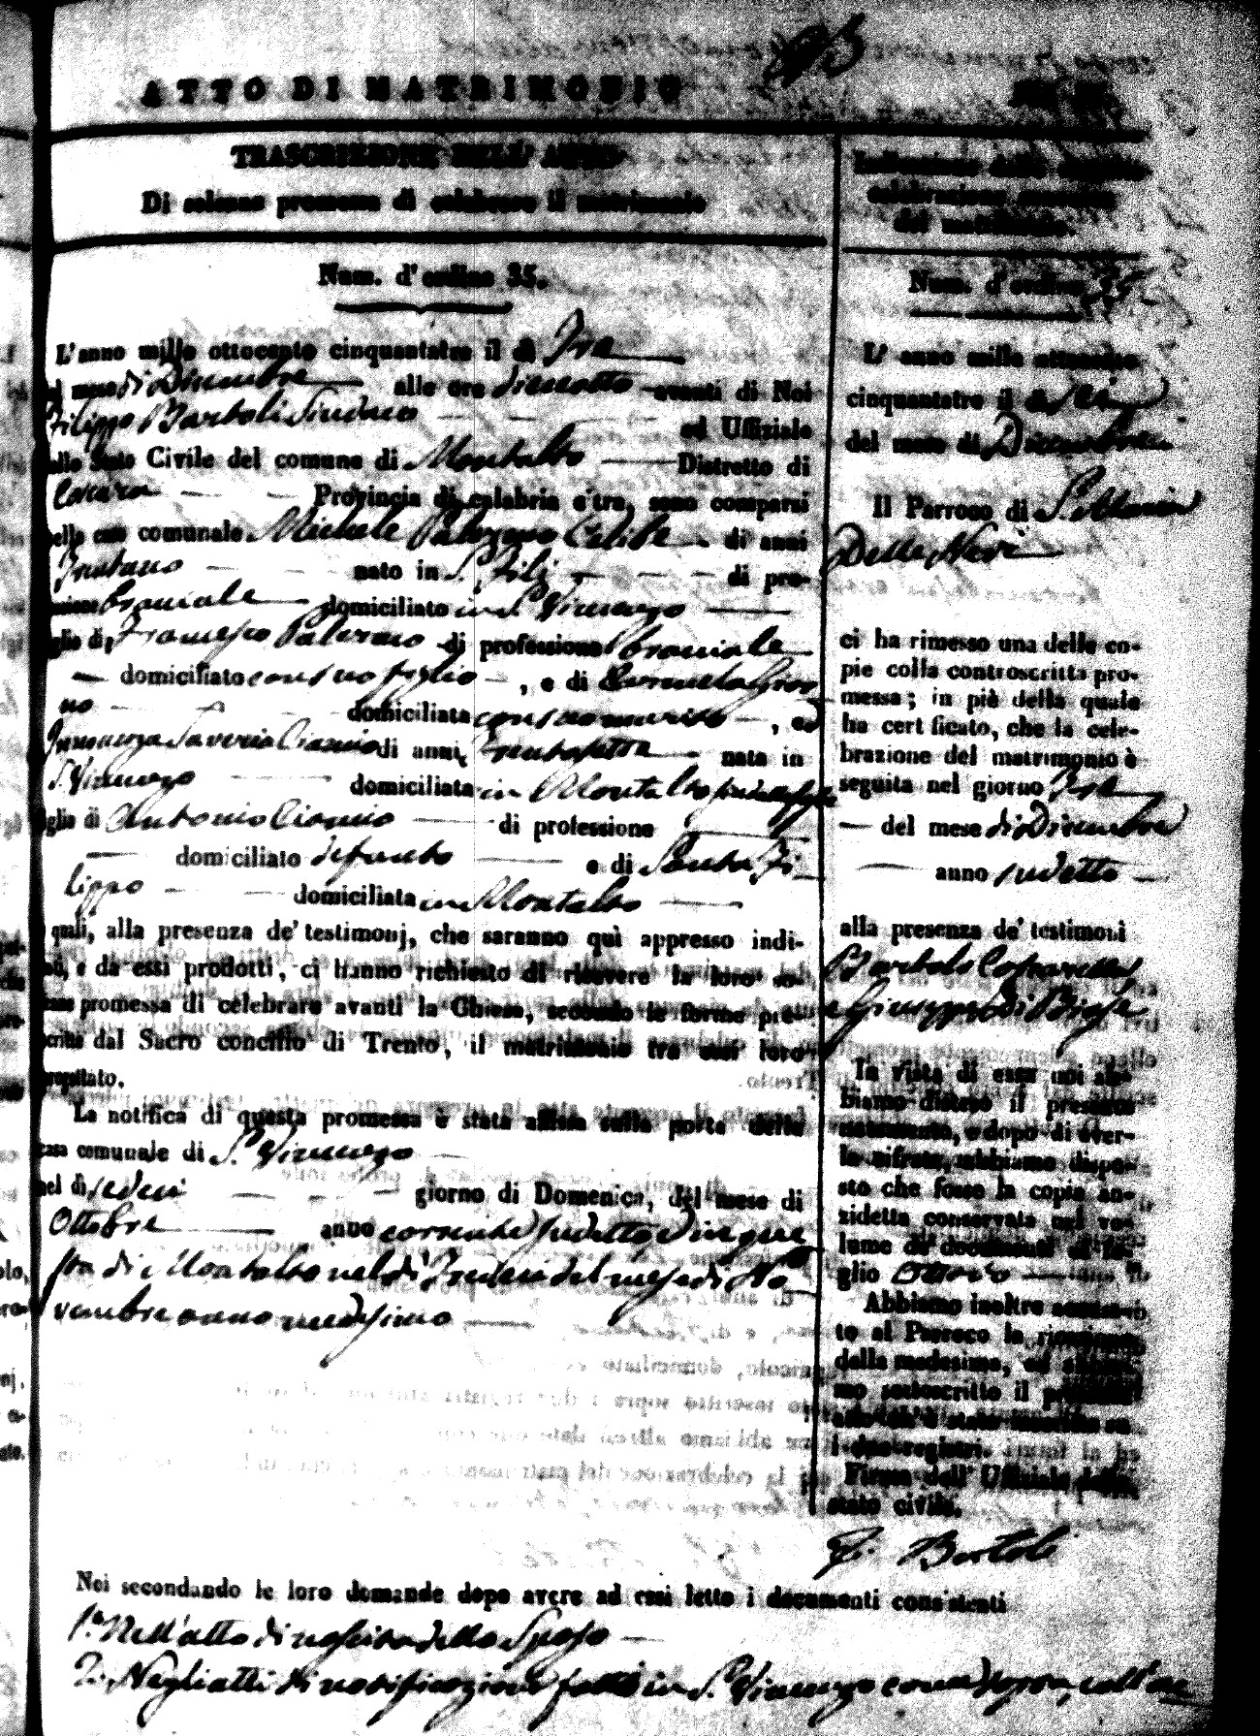 ATTO DI MATRIMONIO
TRASCRIZIONE DELL' ATTO
Di solenne promessa di celebrare il matrimonio
Num. d'ordine 35.
L'anno mille ottocento cinquantatre il dì Tre
mese di Dicembre alle ore diciotto avanti di Noi
Filippo Bartoli Sindaco ed Uffiziale
Stato Civile del comune di Montalto Distretto di
Cosenza Provincia di calabria citra, sono comparsi
casa comunale Michele Palermo Celibe di anni
Trentano nato in S. Fili di pro-
braciale domiciliato in S. Vincenzo
di Francesco Palermo di professione braciale
domiciliato con suo figlio, e di
no domiciliata con suo marito, ed
Saveria Ciancio di anni nata in
S. Vincenzo domiciliata in Montalto
di Antonio Ciancio di professione
domiciliato defunto e di Santa Fi
lippo domiciliata in Montalto
quali, alla presenza de' testimonj, che saranno quì appresso indi-
e da essi prodotti, ci hanno richiesto di ricevere la loro so-
promessa di celebrare avanti la Chiesa, secondo le forme pre-
dal Sacro concilio di Trento, il matrimonio tra essi loro
La notifica di questa promessa è stata affissa sulla porta della
casa comunale di S. Vincenzo
nel dì sedeci giorno di Domenica, del mese di
Ottobre anno corrente sudetto, e in que
sta di Montalto nel dì Tredeci del mese di No
vembre anno medesimo
Noi secondando le loro domande dopo avere ad essi letto i documenti consistenti
1. Nell'atto di nascita dello Sposo
2. Negli atti di notificazione fatte in S. Vincenzo come sopra,
Indicazione della
celebrazione
del matrimonio.
Num. d'ordine 35
L' anno mille ottocento
cinquantatre il dì Sei
del mese di Dicembre
Il Parroco di S. Maria
Delle Nevi
ci ha rimesso una delle co-
pie colla controscritta pro-
messa; in piè della quale
ha certificato, che la cele-
brazione del matrimonio è
seguita nel giorno Tre
del mese di Dicembre
anno sudetto
alla presenza de' testimoni
Bartolo
e Giuseppe Di Biase
In vista di essa noi ab-
biamo disteso il presente
notamento, e dopo di aver-
lo cifrato, abbiamo dispo-
sto che fosse la copia an-
zidetta conservata nel vo-
lume de' documenti al fo-
glio Ottavo
Abbiamo inoltre accusa-
to al Parroco la ricezione
della medesima, ed abbia-
mo sottoscritto il presente
atto ch'è stato inscritto su
i due registri.
Firma dell' Uffiziale dello
stato civile.
F. Bartoli